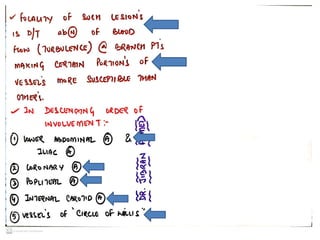 ✓ FOCALITY OF SUCH LESION'S
IS D/T abⓃ OF BLOOD
FLOW (TURBULENCE) @ BRANCH PTS
MAKING CERTAIN PORTION'S OF
VESSEL'S MORE SUSCEPTIBLE THAN
OTHER'S.
✓ IN DESCENDING ORDER OF
INVOLVEMENT:-
① LOWER ABDOMINAL Ⓐ &
ILIAC Ⓐ
② CORONARY Ⓐ
③ POPLITEAL Ⓐ
④ INTERNAL CAROTID Ⓐ
⑤ VESSEL'S OF "CIRCLE OF WILLIS"